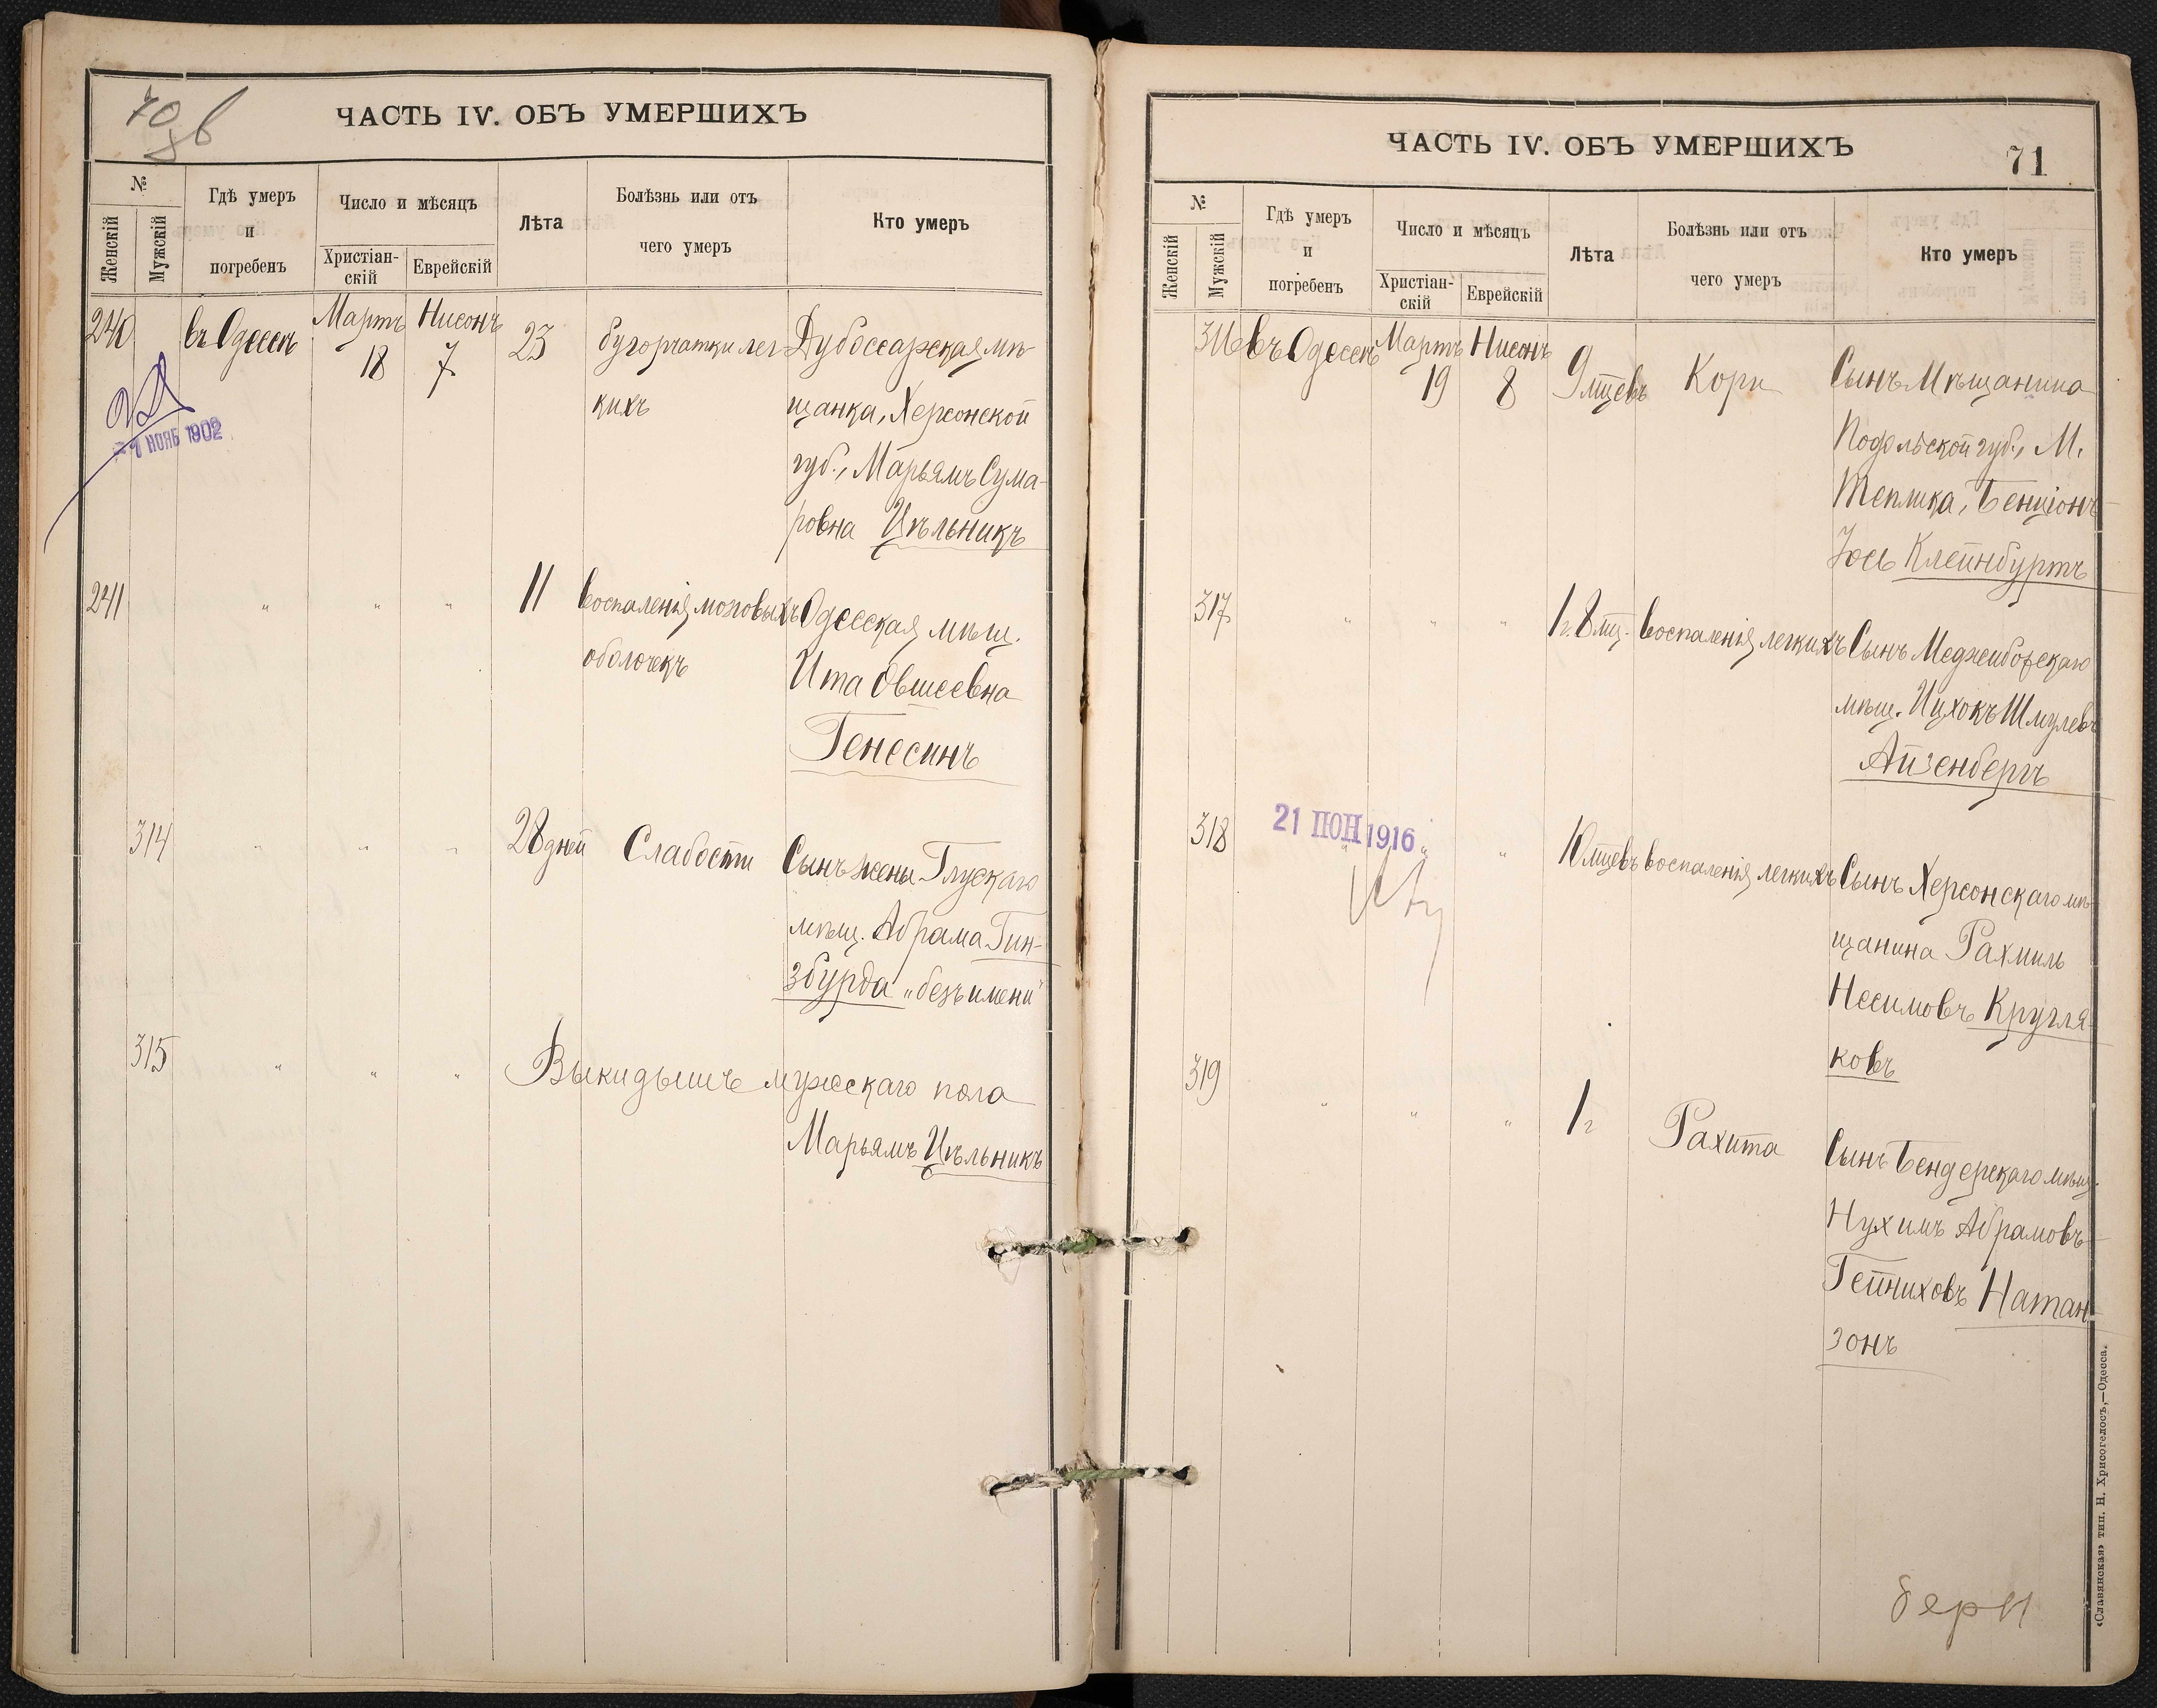 ЧАСТЬ IV. ОБЪ УМЕРШИХЪ
№
Женскій
Мужскій
Гдѣ умеръ
и
погребенъ
Число и мѣсяцъ
Христіан-
скій
Еврейскій
Лѣта
Болѣзнь или отъ
чего умеръ
Кто умеръ
240 въ Одессѣ Мартъ 18 Нисонъ 7 23 бугорчатки лег- Дубоссарская мѣ-
кихъ щанка, Херсонской
губ., Марьямъ Сума-
ровна Цѣльникъ
-1 НОЯБ 1902
241 " " " 11 воспаленія мозговыхъ Одесская мѣщ.
оболочекъ Ита Овшеевна
Генесинъ
314 " " " 28 дней Слабости Сынъ жены Глускаго
мѣщ. Абрама Гин-
збурда „безъ имени"
315 " " " Выкидышъ мужескаго пола
Марьямъ Цѣльникъ
ЧАСТЬ IV. ОБЪ УМЕРШИХЪ
71
№
Женскій
Мужскій
Гдѣ умеръ
и
погребенъ
Число и мѣсяцъ
Христіан-
скій
Еврейскій
Лѣта
Болѣзнь или отъ
чего умеръ
Кто умеръ
316 въ Одессѣ Мартъ 19 Нисонъ 8 9 мцевъ Кори Сынъ Мѣщанина
Подольской губ., М.
Теплика, Бенціонъ
Іось Клейнбуртъ
317 " " " 1г. 8 мц. воспаленія легкихъ Сынъ Меджибожскаго
мѣщ. Ицхокъ Шмулевъ
Айзенбергъ
21 ІЮН 1916
318 " " " 10 мцевъ воспаленія легкихъ Сынъ Херсонскаго мѣ-
щанина Рахмиль
Нссимовъ Кругля-
ковъ
319 " " " 1 г Рахита Сынъ Бендерскаго мѣщ.
Нухимъ Абрамовъ-
Гейниховъ Натан-
зонъ
«Славянская» тип. Н. Хрисогелосъ,—Одесса.